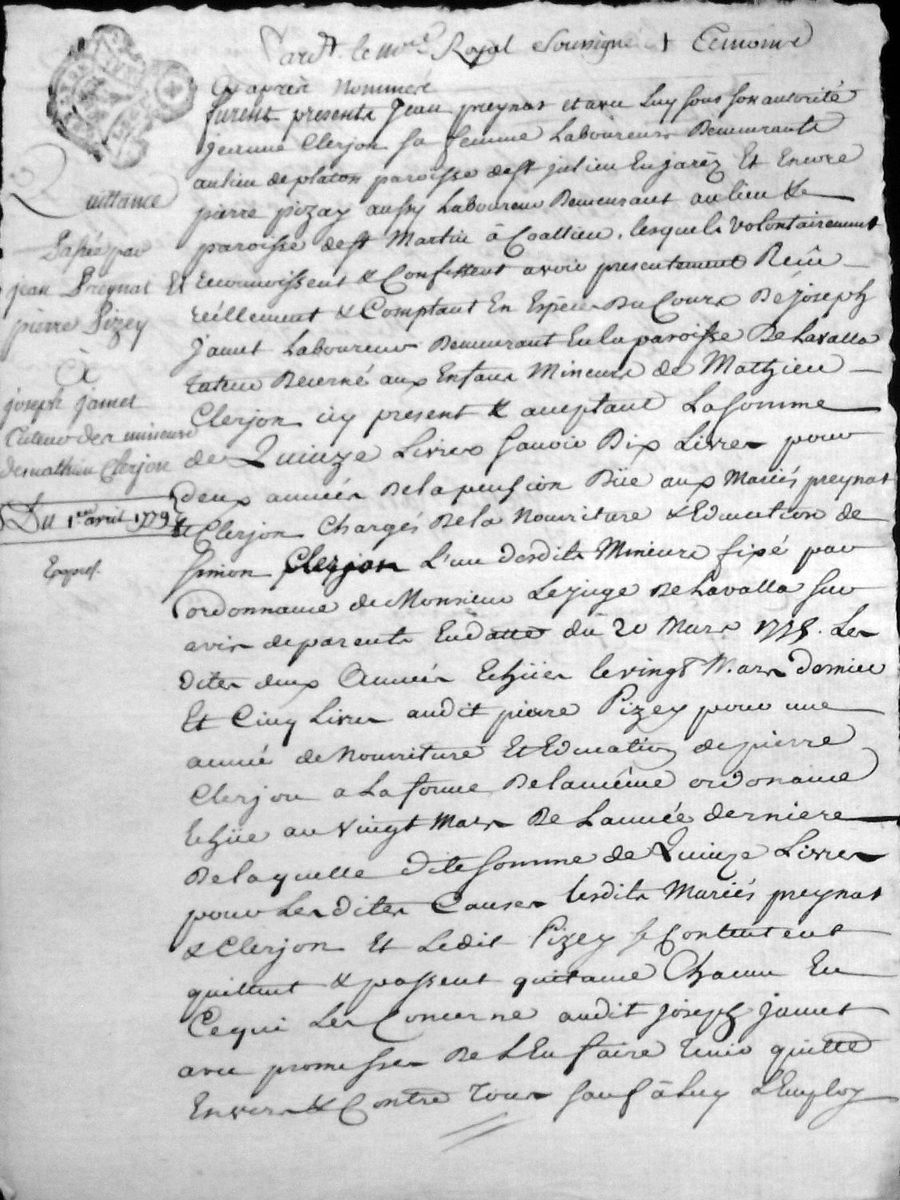 Pardt. le nore Royal Soussigné & temoins
Cy après nommés
furent presents Jean preynat et avec Luy sous son autorité
Jeanne Clerjon sa femme Laboureurs Demeurants
au lieu de platon paroisse de st julien En jarêz Et Encore
pierre pizay aussy Laboureur Demeurant au lieu &
paroisse de st Martin à Coallieu, lesquels volontairement
reconnoissent & Confessent avoir presentement Reçû
réellement & Comptant En Espèces Du Cours De joseph
jamet Laboureur Demeurant En la paroisse De Lavalla
tuteur Decerné aux Enfans Mineurs de Mathieu
Clerjon icy present & aceptant La somme
de Quinze Livres Sauoir Dix Livres pour
deux années De la pension Düe aux Mariés preynat
& Clerjon Chargés De la Nourriture & Education de
Simon Clerjon L'un desdits Mineurs fixé par
ordonnance de Monsieur Le juge De Lavalla sur
avis de parents En datte du 20 Mars 1775. Les
dites deux Années Echües le vingt Mars dernier
Et Cinq Livres audit pierre Pizey pour une
année de Nourriture Et Education de pierre
Clerjon a La forme De la même ordonance
Echüe au vingt Mars De L'année derniere
De laquelle dite somme de Quinze Livres
pour Les dites Causes Lesdits Mariés preynat
& Clerjon Et Ledit Pizey se Contentent
quittent & passent quitance Chacun En
Cequi Les Concerne audit joseph jamet
avec promesses De L'En faire tenir quitte
Envers & Contre Tous sauf à Luy L'Employ
Quittance
Passée par
jean Preynat Et
pierre Pizey
À
joseph jamet
tuteur des mineurs
de mathieu Clerjon
Du 1er avril 1779